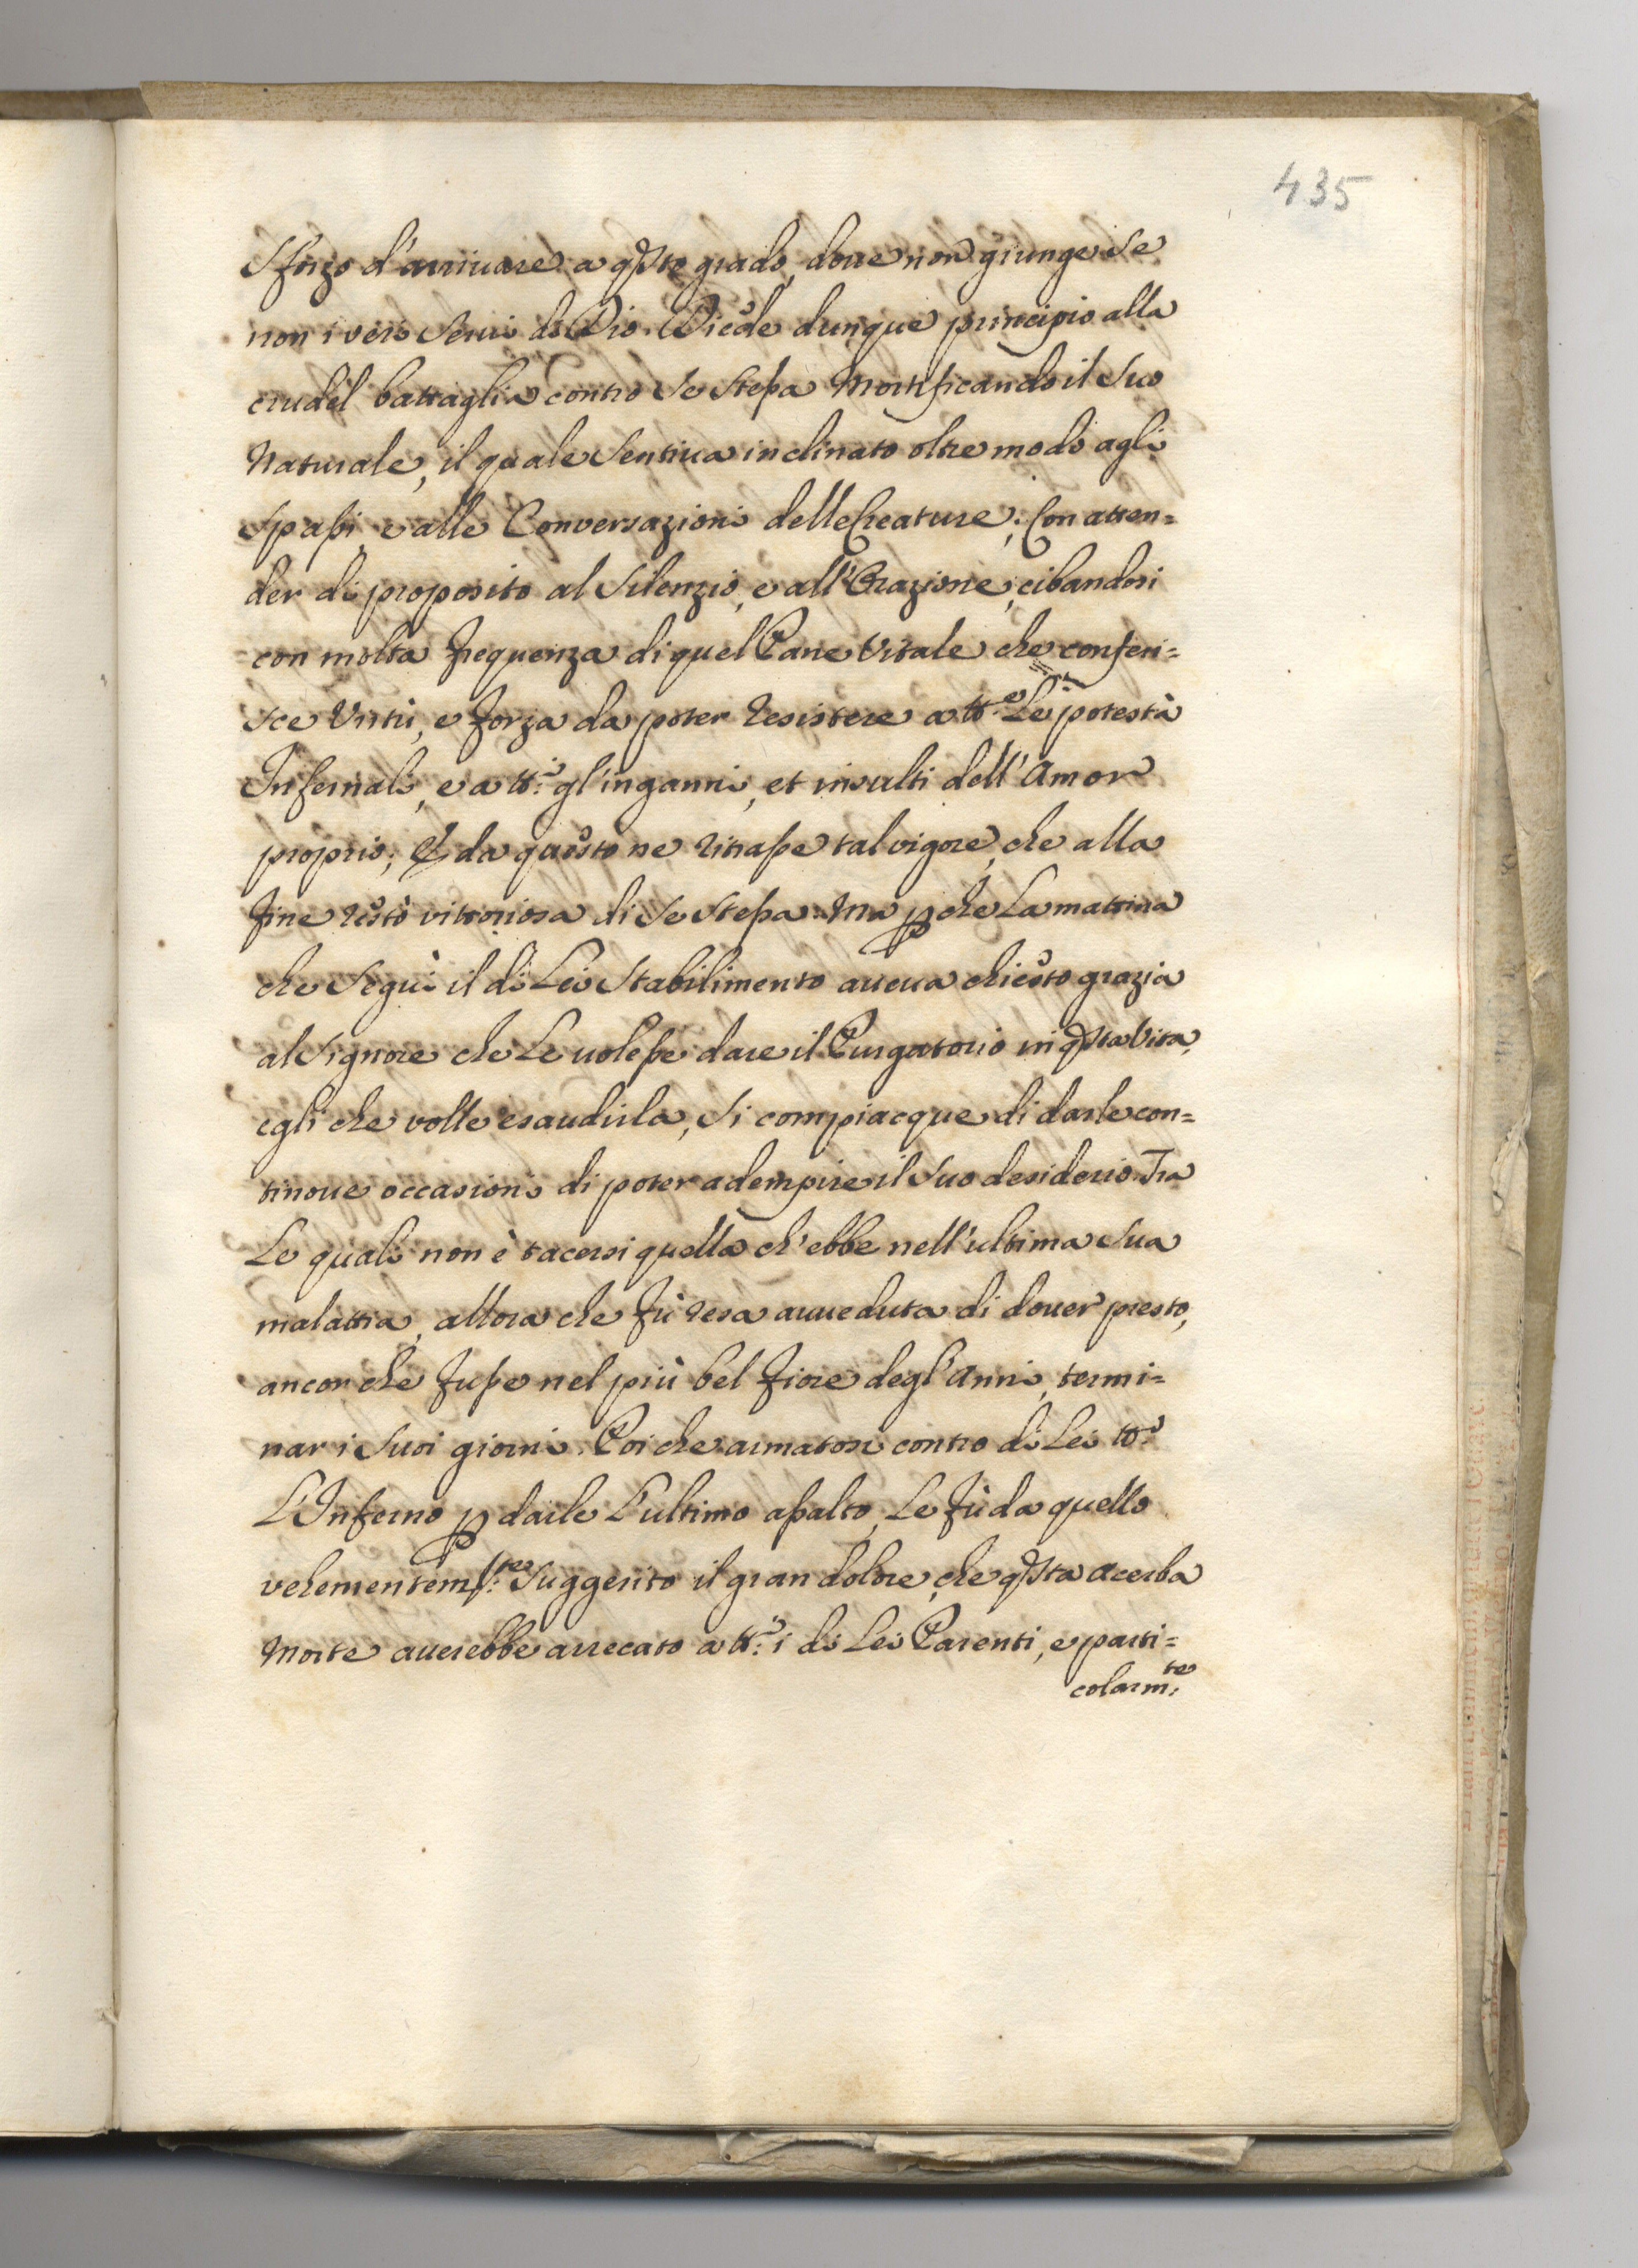 435
Sforzo d'arriuare a qsto grado, doue non giunge se
non i veri Serui di Dio. Diede dunque principio alla
crudel battaglia contro Se Stessa Mortificando il Suo
Naturale, il quale Sentiua inclinato oltre modo agli
Spassi, e alle Conversazioni delle Creature; Con atten=
der di proposito al Silenzio, e all'Orazione, cibandosi
con molta frequenza di quel Pane Vitale che conferi=
sce Virtù, e forza da poter resistere a tt.e Le potestà
Infernali, e a tt.i gl'inganni, et insulti dell'Amor
proprio; E da questo ne ritrasse tal vigore, che alla
fine restò vittoriosa di Se Stessa. Ma p che La mattina
che Seguì il di Lei Stabilimento aueua chiesto grazia
al Signore che Le uolesse dare il Purgatorio in qsta Vita,
egli che volle esaudirla, Si compiacque di darle con=
tinoue occasioni di poter adempire il Suo desiderio. Tra
Le quali non è tacersi quella ch'ebbe nell'ultima Sua
malattia, allora che fù resa auueduta di douer presto,
ancor che fusse nel più bel fiore degl'Anni, termi=
nar i Suoi giorni. Poi che armatosi contro di Lei tt.o
L'Inferno p darle L'ultimo assalto, Le fù da quello
vehementem.te Suggerito il gran dolore, che qsta acerba
Morte auerebbe arrecato a tt.i i di Lei Parenti, e parti=
colarm.te